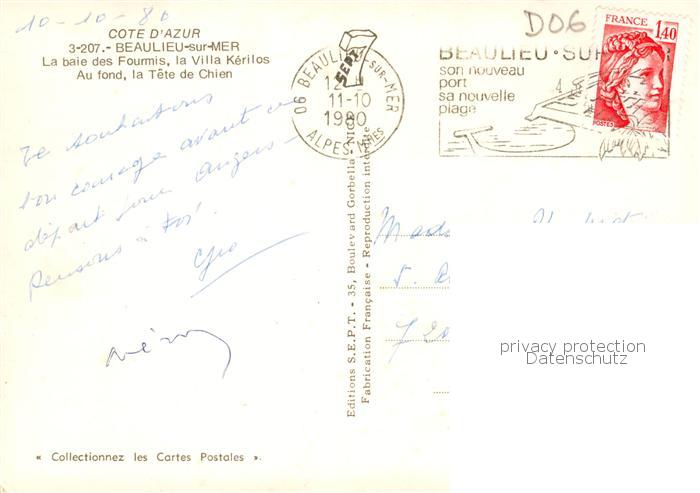 10-10-80
COTE D'AZUR
3-207.- BEAULIEU-sur-MER
La baie des Fourmis, la Villa Kérilos
Au fond, la Tête de Chien
Te souhaitons
bon courage avant
départ pour Angers
Pensons à toi!
« Collectionnez les Cartes Postales ».
Editions S.E.P.T. - 35, Boulevard Gorbella - NICE
Fabrication Française - Reproduction Interdite
06 BEAULIEU-SUR-MER
12 H
11-10
1980
ALPES MMES
SEPT
D06
BEAULIEU-SUR
son nouveau
port
sa nouvelle
plage
FRANCE
1,40
POSTES
privacy protection
Datenschutz